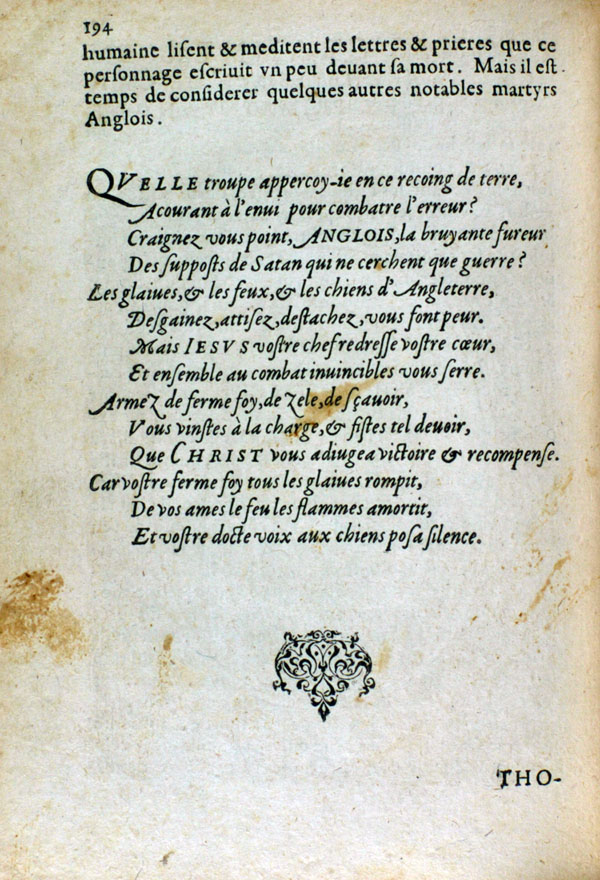 194
humaine lisent & meditent les lettres & prieres que ce
personnage escriuit vn peu deuant sa mort. Mais il est
temps de considerer quelques autres notables martyrs
Anglois.
QVELLE troupe appercoy-ie en ce recoing de terre,
Acourant à l'enui pour combatre l'erreur?
Craignez vous point, ANGLOIS, la bruyante fureur
Des supposts de Satan qui ne cerchent que guerre?
Les glaiues, & les feux, & les chiens d'Angleterre,
Desgainez, attisez, destachez, vous font peur.
Mais IESVS vostre chef redresse vostre cœur,
Et ensemble au combat inuincibles vous serre.
Armez de ferme foy, de zele, de sçauoir,
Vous vinstes à la charge, & fistes tel deuoir,
Que CHRIST vous adiugea victoire & recompense.
Car vostre ferme foy tous les glaiues rompit,
De vos ames le feu les flammes amortit,
Et vostre docte voix aux chiens posa silence.
THO-